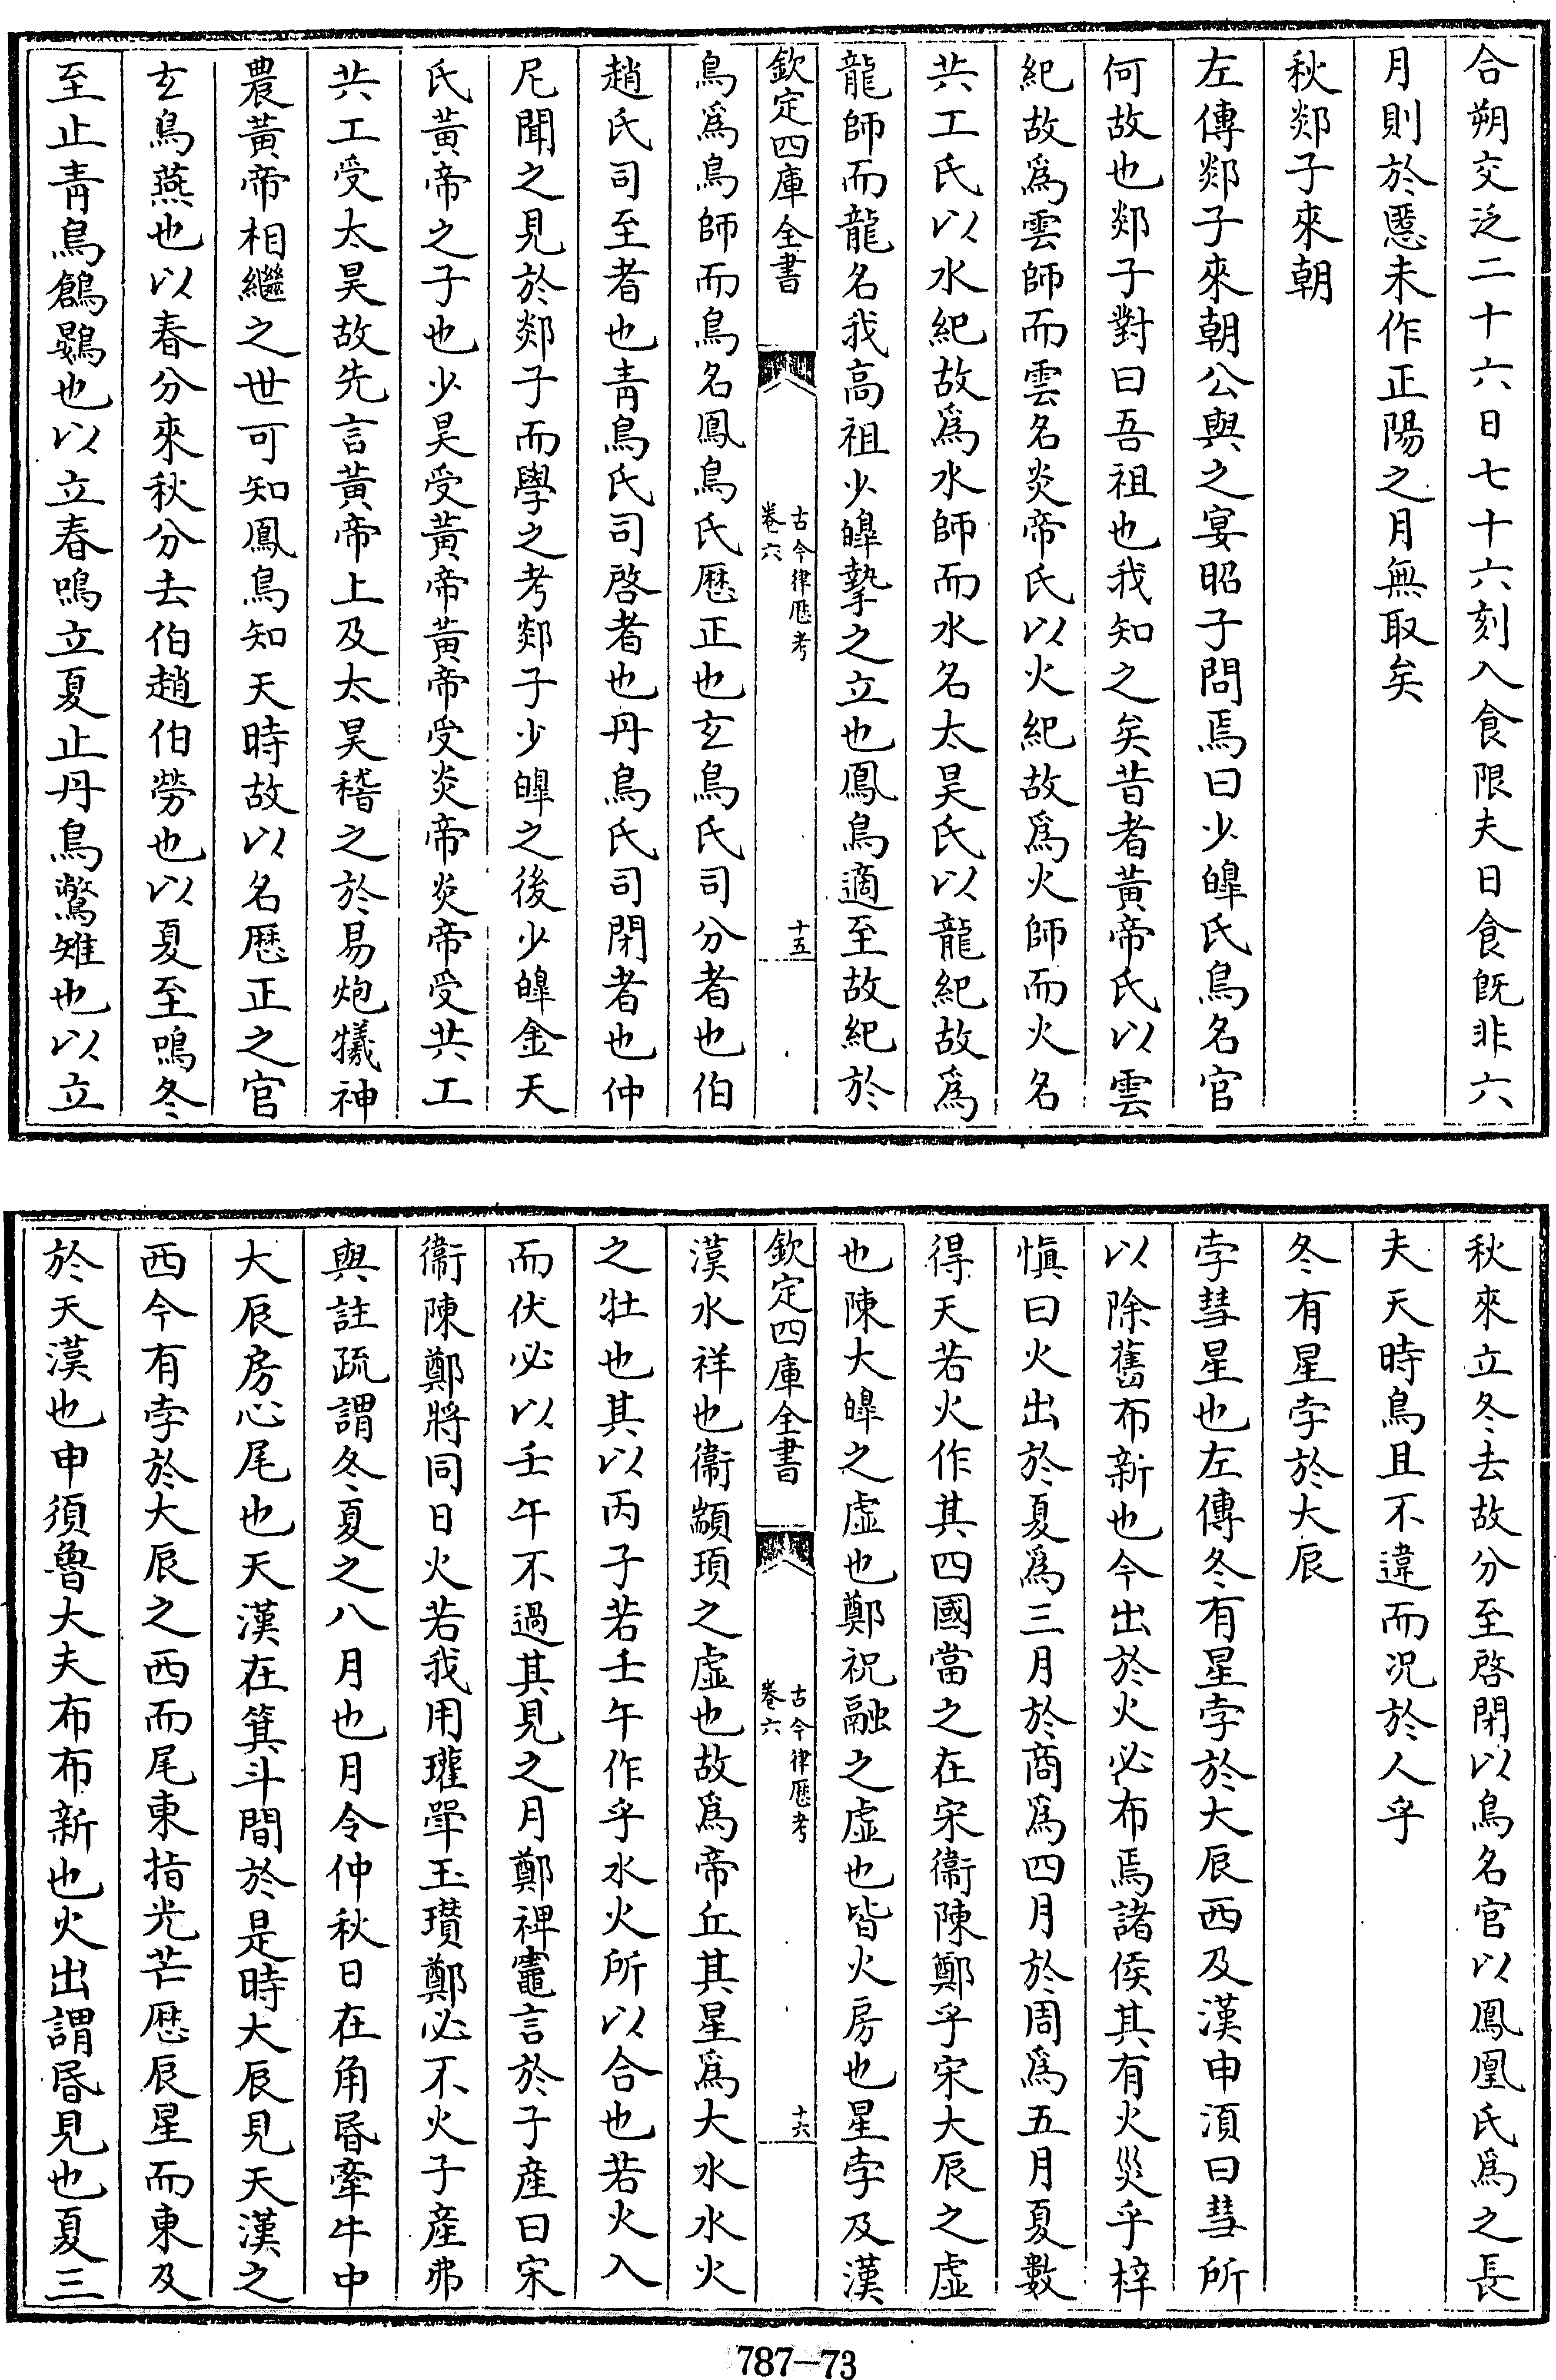 合朔交泛二十六日七十六刻入食限夫日食旣非六
月則於慝未作正陽之月無取矣
秋郯子來朝
左傳郯子來朝公與之宴昭子問焉曰少皥氏鳥名官
何故也郯子對曰吾祖也我知之矣昔者黃帝氏以雲
紀故爲雲師而雲名炎帝氏以火紀故爲火師而火名
共工氏以水紀故爲水師而水名太昊氏以龍紀故爲
龍師而龍名我高祖少皥摯之立也鳳鳥適至故紀於
欽定四庫全書
古今律厯考
卷六
十五
鳥爲鳥師而鳥名鳳鳥氏厯正也玄鳥氏司分者也伯
趙氏司至者也青鳥氏司啓者也丹鳥氏司閉者也仲
尼聞之見於郯子而學之考郯子少皥之後少皥金天
氏黃帝之子也少昊受黃帝黃帝受炎帝炎帝受共工
共工受太昊故先言黃帝上及太昊稽之於易炮犧神
農黃帝相繼之世可知鳳鳥知天時故以名厯正之官
玄鳥燕也以春分來秋分去伯趙伯勞也以夏至鳴冬
至止青鳥鶬鷃也以立春鳴立夏止丹鳥鷩雉也以立
秋來立冬去故分至啓閉以鳥名官以鳳凰氏爲之長
夫天時鳥且不違而况於人乎
冬有星孛於大辰
孛彗星也左傳冬有星孛於大辰西及漢申湏曰彗所
以除舊布新也今出於火必布焉諸侯其有火災乎梓
慎曰火出於夏爲三月於商爲四月於周爲五月夏數
得天若火作其四國當之在宋衞陳鄭乎宋大辰之虛
也陳大皥之虛也鄭祝融之虛也皆火房也星孛及漢
欽定四庫全書
古今律厯考
卷六
十六
漢水祥也衞顓頊之虛也故爲帝丘其星爲大水水火
之牡也其以丙子若壬午作乎水火所以合也若火入
而伏必以壬午不過其見之月鄭裨竈言於子產曰宋
衞陳鄭將同日火若我用瓘斝玉瓚鄭必不火子產弗
與註疏謂冬夏之八月也月令仲秋日在角昬牽牛中
大辰房心尾也天漢在箕斗間於是時大辰見天漢之
西今有孛於大辰之西而尾東指光芒厯辰星而東及
於天漢也申須魯大夫布布新也火出謂昬見也夏三
787—73